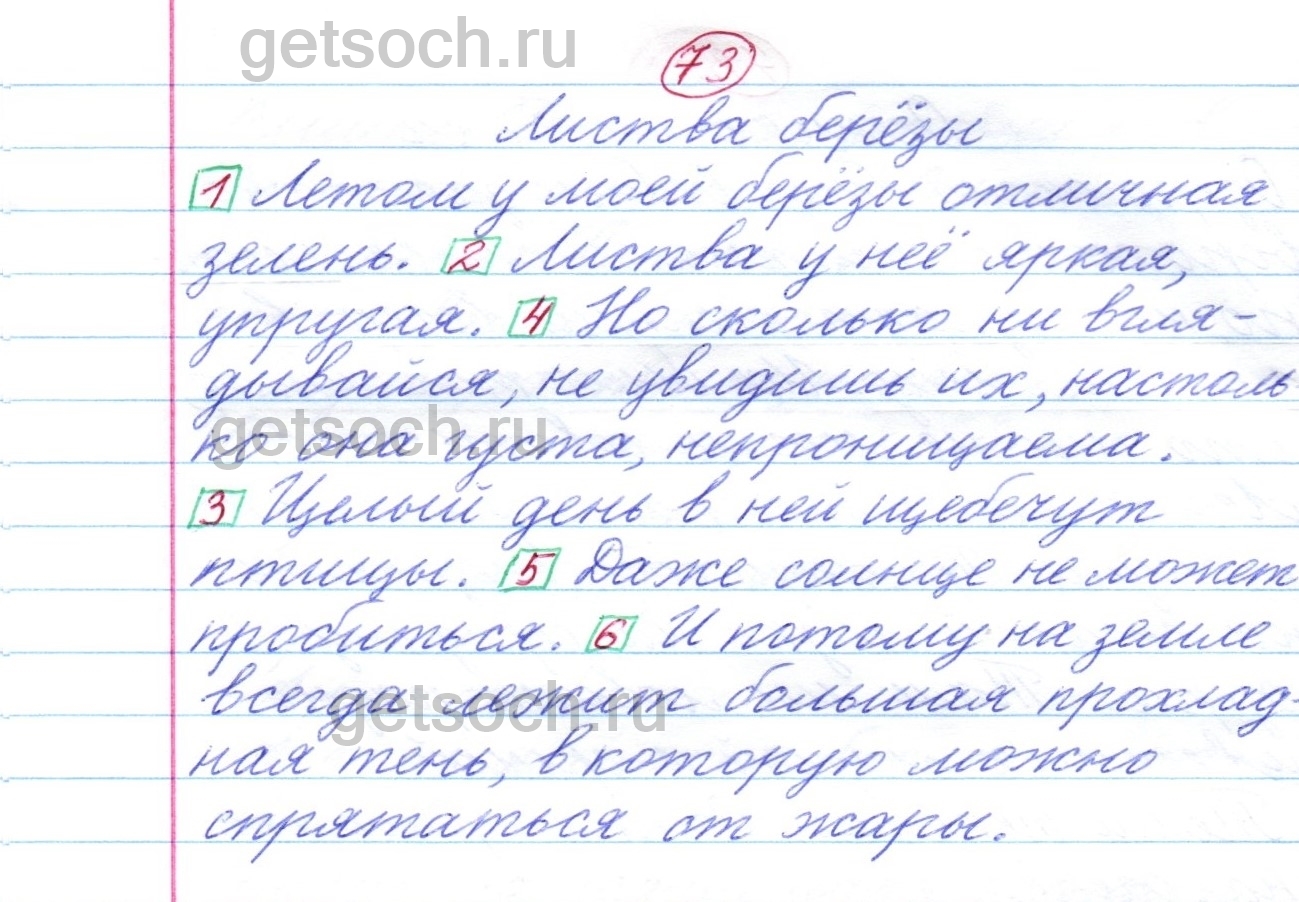 getsoch.ru
73
Листва берёзы
1 Летом у моей берёзы отличная
зелень. 2 Листва у неё яркая,
упругая. 4 Но сколько ни вгля-
дывайся, не увидишь их, настоль
getsoch.ru
ко она густа, непроницаема.
3 Целый день в ней щебечут
птицы. 5 Даже солнце не может
пробиться. 6 И потому на земле
всегда лежит большая прохлад-
getsoch.ru
ная тень, в которую можно
спрятаться от жары.